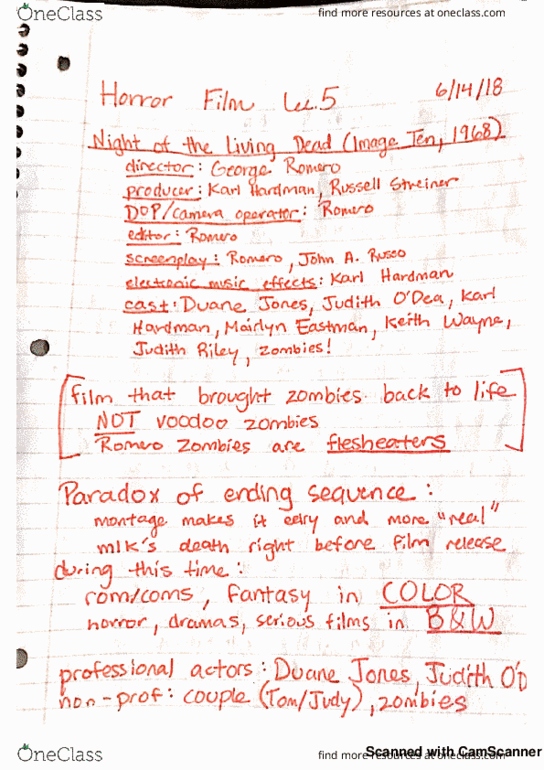 OneClass
find more resources at oneclass.com
Horror Film Lec. 5
6/14/18
Night of the Living Dead (Image Ten, 1968)
director: George Romero
producer: Karl Hardman, Russell Streiner
DOP/camera operator: Romero
editor: Romero
screenplay: Romero, John A. Russo
electronic music effects: Karl Hardman
cast: Duane Jones, Judith O'Dea, Karl
Hardman, Mairlyn Eastman, Keith Wayne,
Judith Riley, zombies!
film that brought zombies back to life
NOT voodoo zombies
Romero zombies are flesheaters
Paradox of ending sequence:
montage makes it eery and more "real"
mlk's death right before film release
during this time:
rom/coms, fantasy in COLOR
horror, dramas, serious films in B&W
professional actors: Duane Jones, Judith O'D
non-prof: couple (Tom/Judy), zombies
OneClass
find more resources at oneclass.com
Scanned with CamScanner